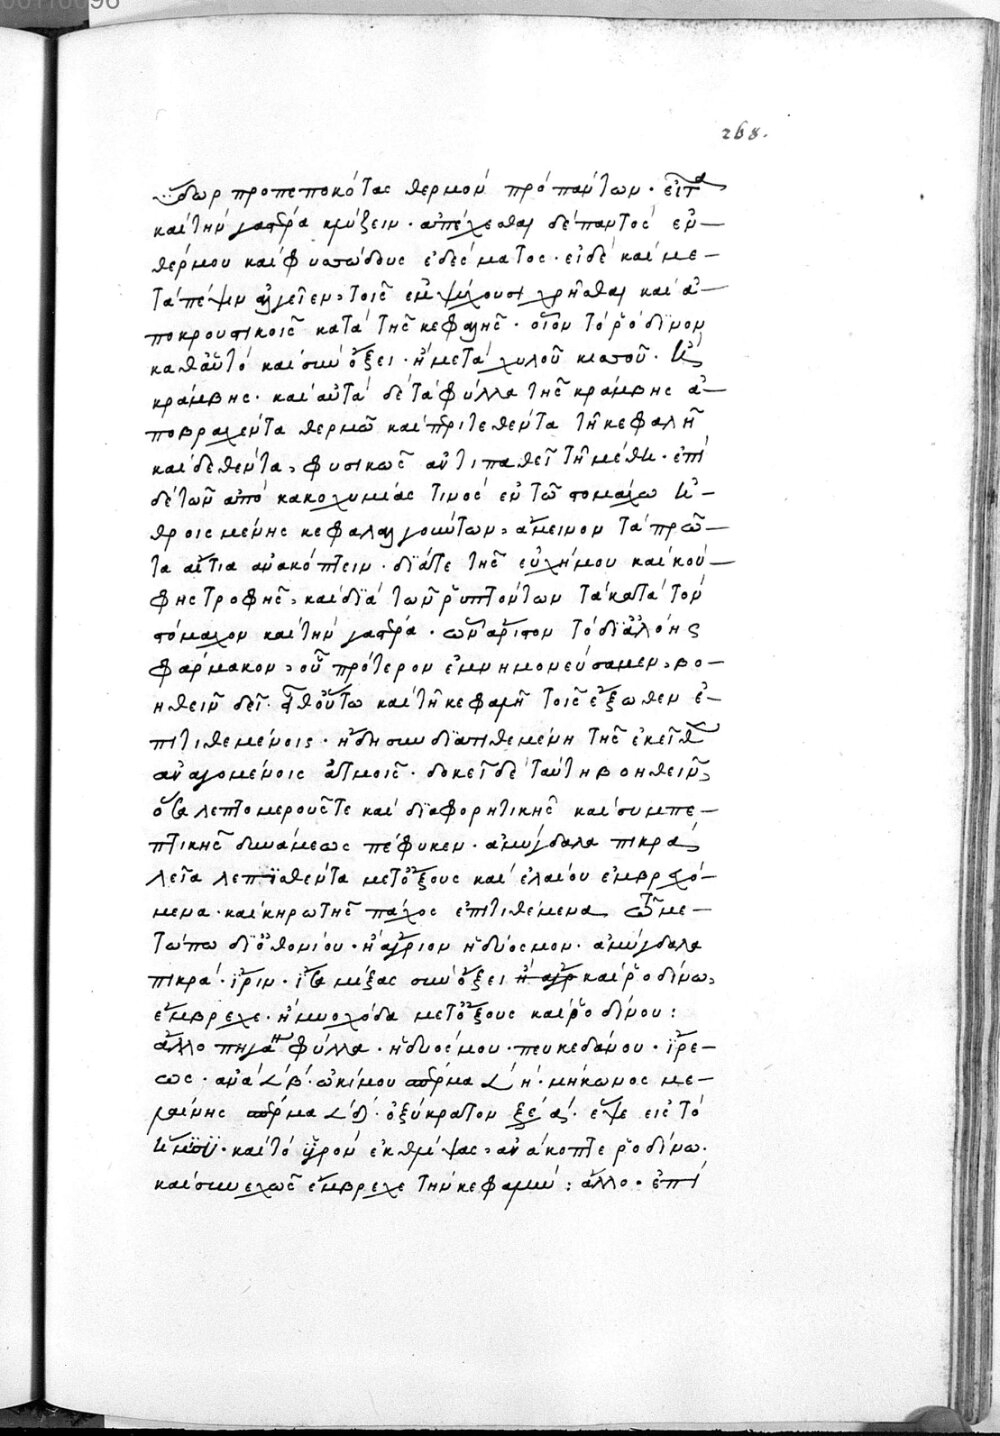 268.
ὕδωρ προπεποκότας θερμὸν πρὸ πάντων· εἶτα
καὶ τὴν γαστέρα κλύζειν· ἀπέχεσθαι δὲ παντὸς ἐν-
θέρμου καὶ φυσώδους ἐδέσματος· εἰ δὲ καὶ με-
τὰ πέψιν ἀλγεῖεν, τοῖς ἐμψύχουσι χρῆσθαι καὶ ἀ-
ποκρουστικοῖς κατὰ τῆς κεφαλῆς· οἷον τὸ ῥόδινον
καθ' αὑτὸ καὶ σὺν ὄξει· ἢ μετὰ χυλοῦ κισσοῦ· ἢ
κράμβης· καὶ αὐτὰ δὲ τὰ φύλλα τῆς κράμβης ἀ-
ποβραχέντα θερμῶ καὶ περιτεθέντα τῆ κεφαλῆ
καὶ δεθέντα, φυσικῶς ἀντιπαθεῖ τῆ μέθη· ἐπὶ
δὲ τῶν ἀπὸ κακοχυμίας τινὸς ἐν τῶ στομάχω ἠ-
θροισμένης κεφαλαλγούντων, ἄμεινον τὰ πρῶ-
τα αἴτια ἀνακόπτειν· διά τε τῆς εὐχύμου καὶ κού-
φης τροφῆς, καὶ διὰ τῶν ῥυπτόντων τὰ κατὰ τὸν
στόμαχον καὶ τὴν γαστέρα· ὧν ἄριστον τὸ δι' ἀλόης
φάρμακον, οὗ πρότερον ἐμνημονεύσαμεν, βο-
ηθεῖν δεῖ· εἶθ' οὕτω καὶ τῆ κεφαλῆ τοῖς ἔξωθεν ἐ-
πιτιθεμένοις· ἤδη συνδιατιθεμένη τῆς ἐκεῖθεν
ἀναγομένοις ἀτμοῖς· δοκεῖ δὲ ταύτη βοηθεῖν,
ὅσα λεπτομεροῦς τε καὶ διαφορητικῆς καὶ συμπε-
πτικῆς δυνάμεως πέφυκεν· ἀμύγδαλα πικρὰ
λεῖα λεπισθέντα μετ' ὄξους καὶ ἐλαίου ἐμβρεχό-
μενα· καὶ κηρωτῆς πάχος ἐπιτιθέμενα τῶ με-
τώπω δι' ὀθονίου· ἢ ἄγριον ἡδύοσμον· ἀμύγδαλα
πικρά· ἶριν· ἴσα μίξας σὺν ὄξει ἢ ἀγρ καὶ ῥοδίνω,
ἔμβρεχε· ἢ μυοχόδα μετ' ὄξους καὶ ῥοδίνου:
ἄλλο πηγάνου φύλλα· ἡδυόσμου· πευκεδάνου· ἴρε-
ως· ἀνὰ 𐅻 β· ὠκίμου σπέρμα 𐅻 η· μήκωνος με-
λαίνης σπέρμα 𐅻 δ· ὀξύκρατον ξέ α· ἕψε εἰς τὸ
ἥμισυ· καὶ τὸ ὑγρὸν ἐκθλίψας, ἀνάκοπτε ῥοδίνω·
καὶ συνεχῶς ἔμβρεχε τὴν κεφαλήν: ἄλλο· ἐπὶ